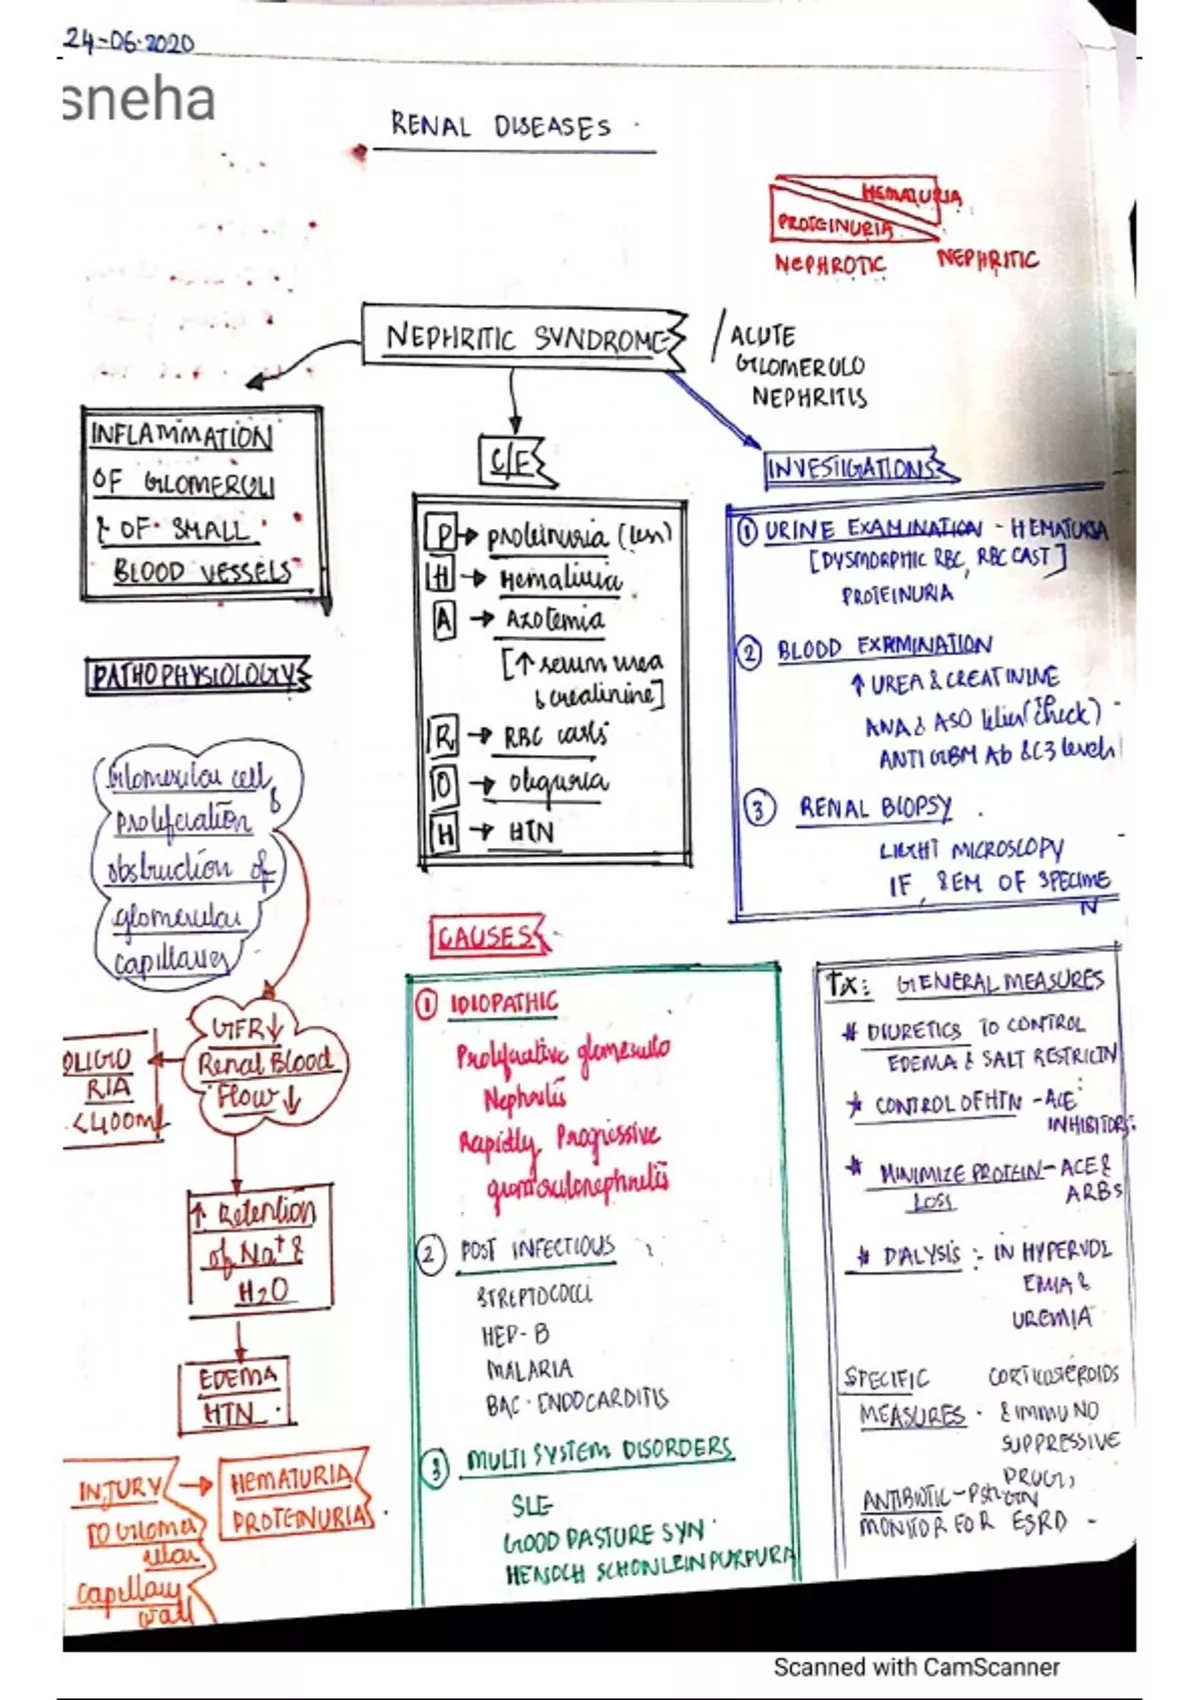 24-06-2020
sneha
RENAL DISEASES
HEMATURIA
PROTEINURIA
NEPHROTIC
NEPHRITIC
NEPHRITIC SYNDROME
/ ACUTE
GLOMERULO
NEPHRITIS
INFLAMMATION
OF GLOMERULI
& OF SMALL
BLOOD VESSELS
PATHOPHYSIOLOGY
Glomerular cell
proliferation &
obstruction of
glomerular
capillaries
GFR↓
Renal Blood
Flow ↓
OLIGU
RIA
<400ml
↑ Retention
of Na+ &
H2O
EDEMA
HTN
INJURY
TO Glome
rular
capillary
wall
HEMATURIA
PROTEINURIA
C/F
P → proteinuria (less)
H → Hematuria
A → Azotemia
[↑ serum urea
& creatinine]
R → RBC casts
O → oliguria
H → HTN
CAUSES
① IDIOPATHIC
Proliferative glomerulo
Nephritis
Rapidly Progressive
② POST INFECTIOUS
STREPTOCOCCI
HEP-B
MALARIA
BAC. ENDOCARDITIS
③ MULTI SYSTEM DISORDERS
SLE
GOOD PASTURE SYN
HENOCH SCHONLEIN PURPURA
INVESTIGATIONS
① URINE EXAMINATION - HEMATURIA
[DYSMORPHIC RBC, RBC CAST]
PROTEINURIA
② BLOOD EXAMINATION
↑ UREA & CREATININE
ANA & ASO titier (check)
ANTI GBM Ab & C3 level
③ RENAL BIOPSY
LIGHT MICROSCOPY
IF, & EM OF SPECIME
N
Tx: GENERAL MEASURES
# DIURETICS TO CONTROL
EDEMA & SALT RESTRICTN
* CONTROL OF HTN - ACE
INHIBITORS
* MINIMIZE PROTEIN - ACE &
LOSS ARBs
* DIALYSIS : IN HYPERVOL
EMIA &
UREMIA
SPECIFIC CORTICOSTEROIDS
MEASURES - & IMMUNO
SUPPRESSIVE
DRUGS
ANTIBIOTIC - PSGN
MONITOR FOR ESRD -
Scanned with CamScanner